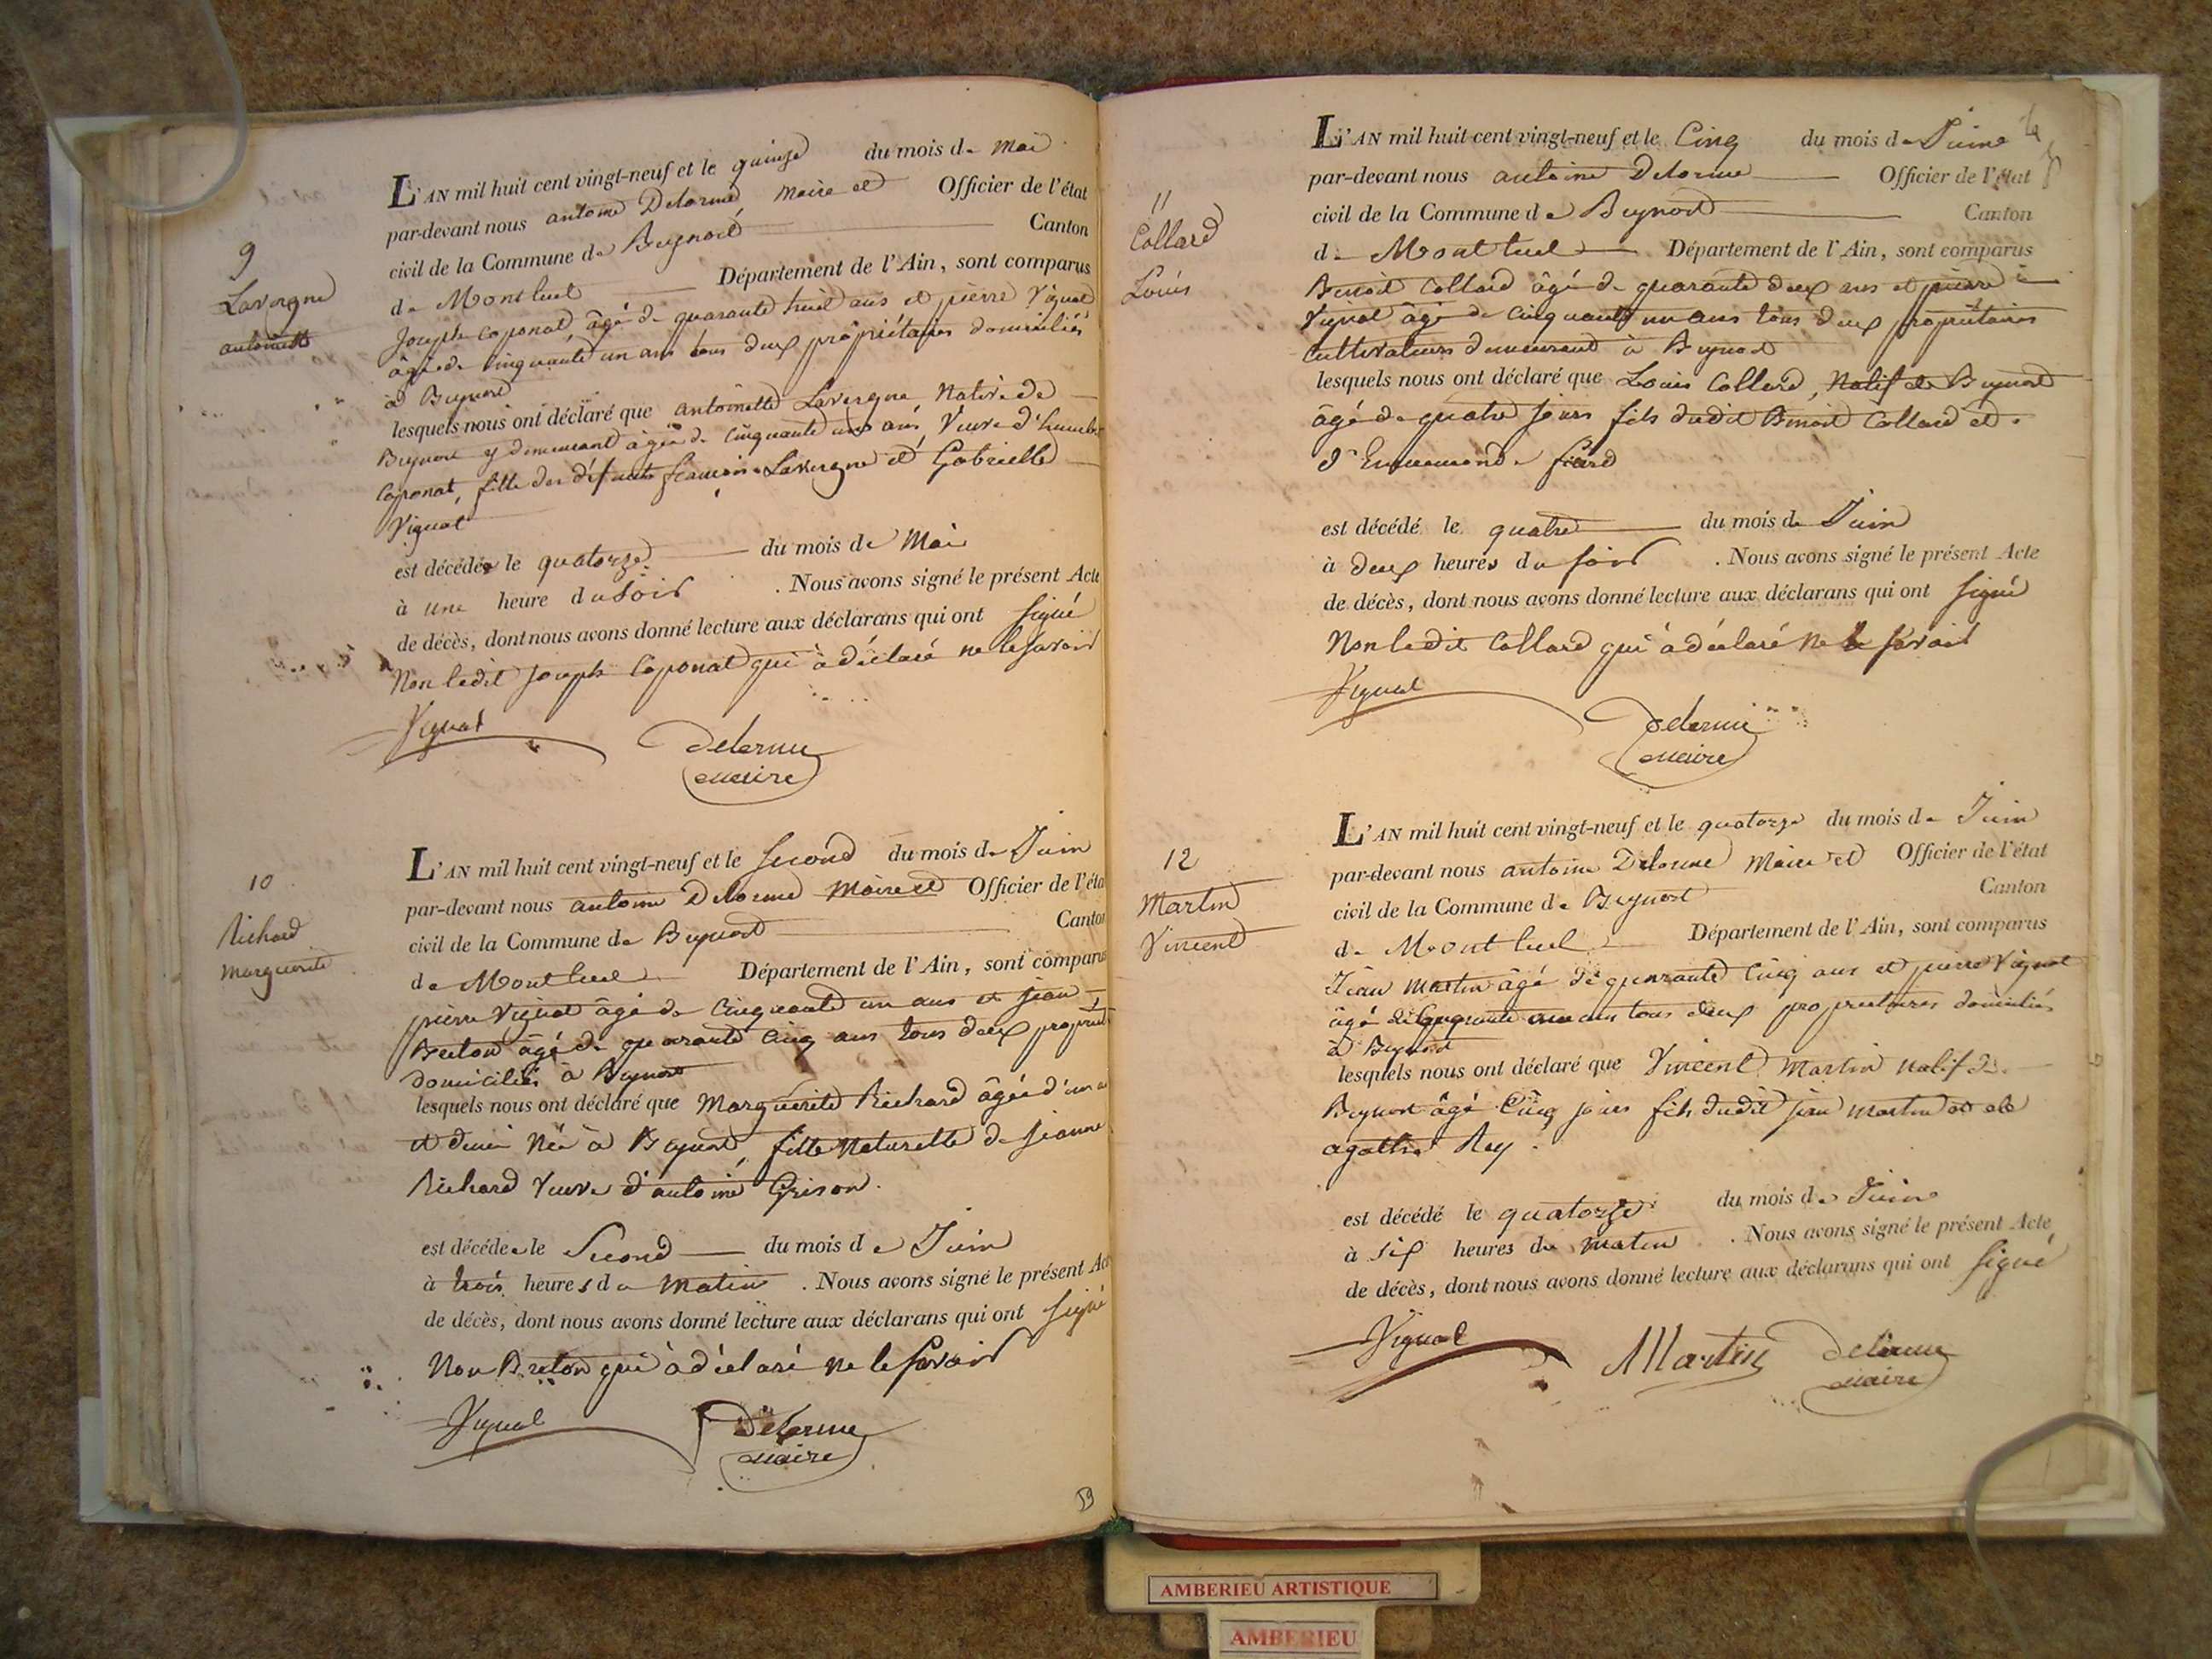 9
Lavergne
antoinette
L'AN mil huit cent vingt-neuf et le quinze du mois de Mai
par-devant nous antoine Delorme, Maire et Officier de l'état
civil de la Commune de Beynost Canton
de Montluel Département de l'Ain, sont comparus
Joseph Caponat, âgé de quarante huit ans et pierre Vignat
âgé de Cinquante un ans tous deux propriétaires domiciliés
à Beynost
lesquels nous ont déclaré que antoinette Lavergne Native de
Beynost y demeurant âgée de Cinquante un ans, Veuve d'humbert
Caponat, fille des défunts françois Lavergne et Gabrielle
Vignat
est décédée le quatorze du mois de Mai
à une heure du Soir . Nous avons signé le présent Acte
de décès, dont nous avons donné lecture aux déclarans qui ont signé
Non ledit Joseph Caponat qui à déclaré ne le savoir
Vignat
Delorme
maire
10
Richard
Marguerite
L'AN mil huit cent vingt-neuf et le second du mois de Juin
par-devant nous antoine Delorme Maire et Officier de l'état
civil de la Commune de Beynost Canton
de Montluel Département de l'Ain, sont comparus
pierre Vignat âgé de Cinquante un ans et jean
Breton âgé de quarante Cinq ans tous deux propriét
domiciliés à Beynost
lesquels nous ont déclaré que Marguerite Richard âgée d'un a
et demi Née à Beynost, fille Naturelle de jeanne
Richard Veuve d'antoine Grison.
est décédée le Second du mois de Juin
à trois heures du Matin . Nous avons signé le présent Acte
de décès, dont nous avons donné lecture aux déclarans qui ont signé
Non Breton qui à déclaré ne le savoir
Vignat
Delorme
maire
59
11
Collard
Louis
L'AN mil huit cent vingt-neuf et le Cinq du mois de Juin
par-devant nous antoine Delorme Officier de l'état
civil de la Commune de Beynost Canton
de Montluel Département de l'Ain, sont comparus
Benoit Collard âgé de quarante deux ans et pierre
Vignat âgé de Cinquante un ans tous deux propriétaires
Cultivateurs demeurant à Beynost
lesquels nous ont déclaré que Louis Collard, Natif de Beynost
âgé de quatre jours fils dudit Benoit Collard et
d'Ennemonde
est décédé le quatre du mois de Juin
à deux heures du soir . Nous avons signé le présent Acte
de décès, dont nous avons donné lecture aux déclarans qui ont signé
Non ledit Collard qui à déclaré Ne le savoir
Vignat
Delorme
maire
12
Martin
Vincent
L'AN mil huit cent vingt-neuf et le quatorze du mois de Juin
par-devant nous antoine Delorme Maire et Officier de l'état
civil de la Commune de Beynost Canton
de Montluel Département de l'Ain, sont comparus
Jean Martin âgé de quarante Cinq ans et pierre Vignat
âgé de Cinquante un ans tous deux propriétaires domiciliés
à Beynost
lesquels nous ont déclaré que Vincent Martin natif de
Beynost âgé Cinq jours fils dudit jean Martin et de
agathe Rey.
est décédé le quatorze du mois de Juin
à six heures du matin . Nous avons signé le présent Acte
de décès, dont nous avons donné lecture aux déclarans qui ont signé
Vignat
Martin
Delorme
maire
AMBERIEU ARTISTIQUE
AMBERIEU